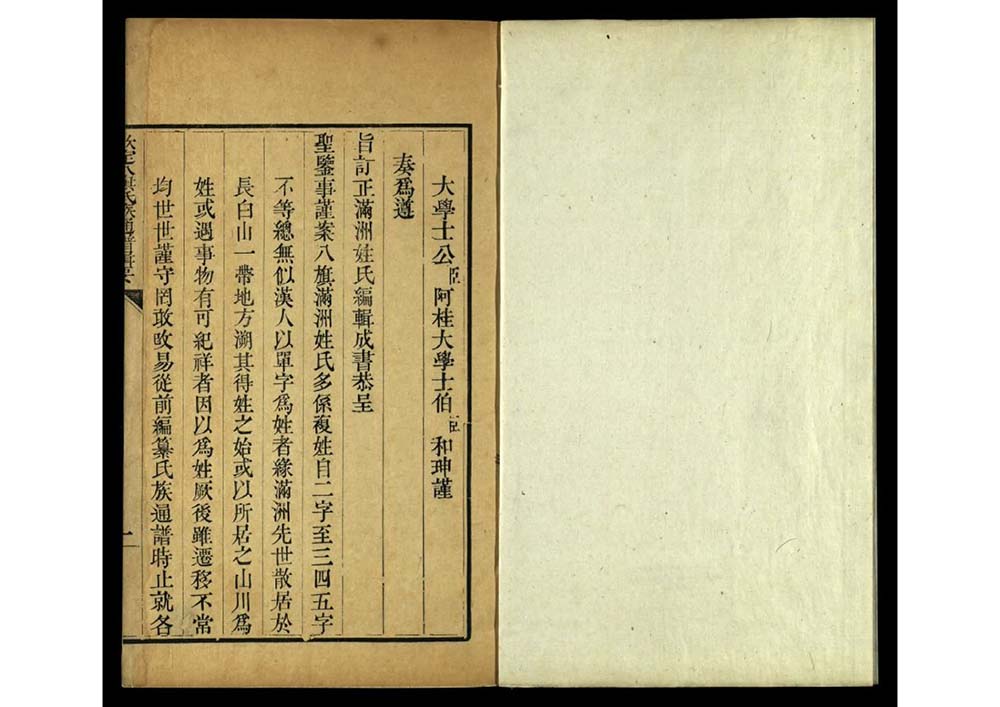 大學士公臣阿桂大學士伯臣和珅謹
奏爲遵
旨訂正滿洲姓氏編輯成書恭呈
聖鑒事謹案八旗滿洲姓氏多係複姓自二字至三四五字
不等總無似漢人以單字爲姓者緣滿洲先世散居於
長白山一帶地方溯其得姓之始或以所居之山川爲
姓或遇事物有可紀祥者因以爲姓厥後雖遷移不常
均世世謹守罔敢改易從前編纂氏族通譜時止就各
欽定八旗氏族通譜輯要
一